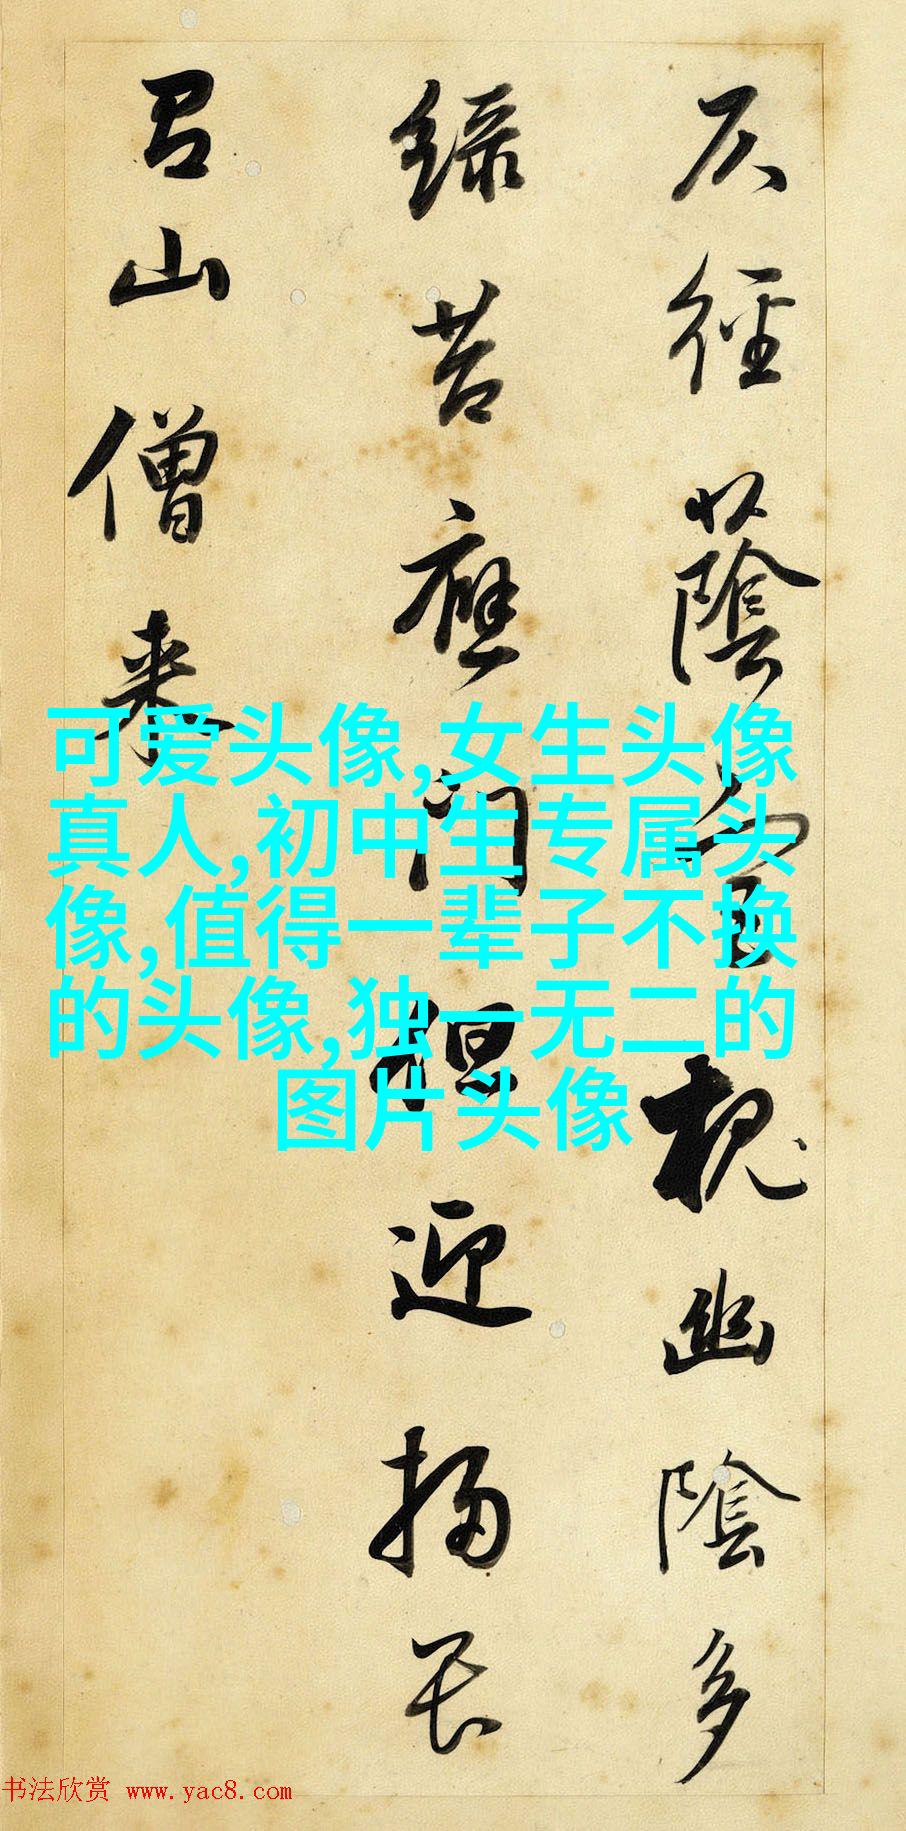 仄徑蔭宮槐幽陰多
綠苔應門但迎掃
山僧來
可爱头像,女生头像
真人,初中生专属头
像,值得一辈子不换
的头像,独一无二的
图片头像
书法欣赏 www.yac8.com